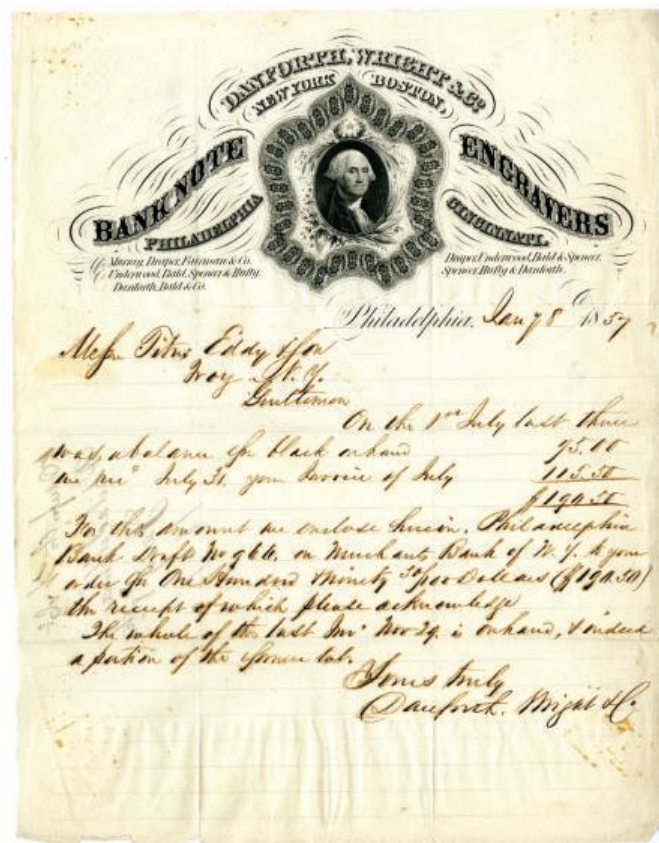 DANFORTH, WRIGHT & Co
NEW YORK BOSTON,
BANK NOTE ENGRAVERS
PHILADELPHIA CINCINNATI.
Murray, Draper, Fairman & Co.
Underwood, Bald, Spencer & Hufty.
Danforth, Bald & Co.
Draper, Underwood, Bald & Spencer.
Spencer, Hufty & Danforth.
Philadelphia, Jan 1857
Messrs Titus Eddy & Son
Troy N. Y.
Gentlemen
On the 1st July last there
was a balance of black on hand
July 31. your Invoice of July 115.50
For this amount we enclose herein, Philadelphia
Bank Draft No 966. on Merchants Bank of N. Y. to your
order for One Hundred & Ninety 50/100 Dollars
the receipt of which please acknowledge
The whole of the last Inv. Nov 29. is on hand, & indeed
a portion of the former lot.
Yours truly
Danforth, Wright & Co